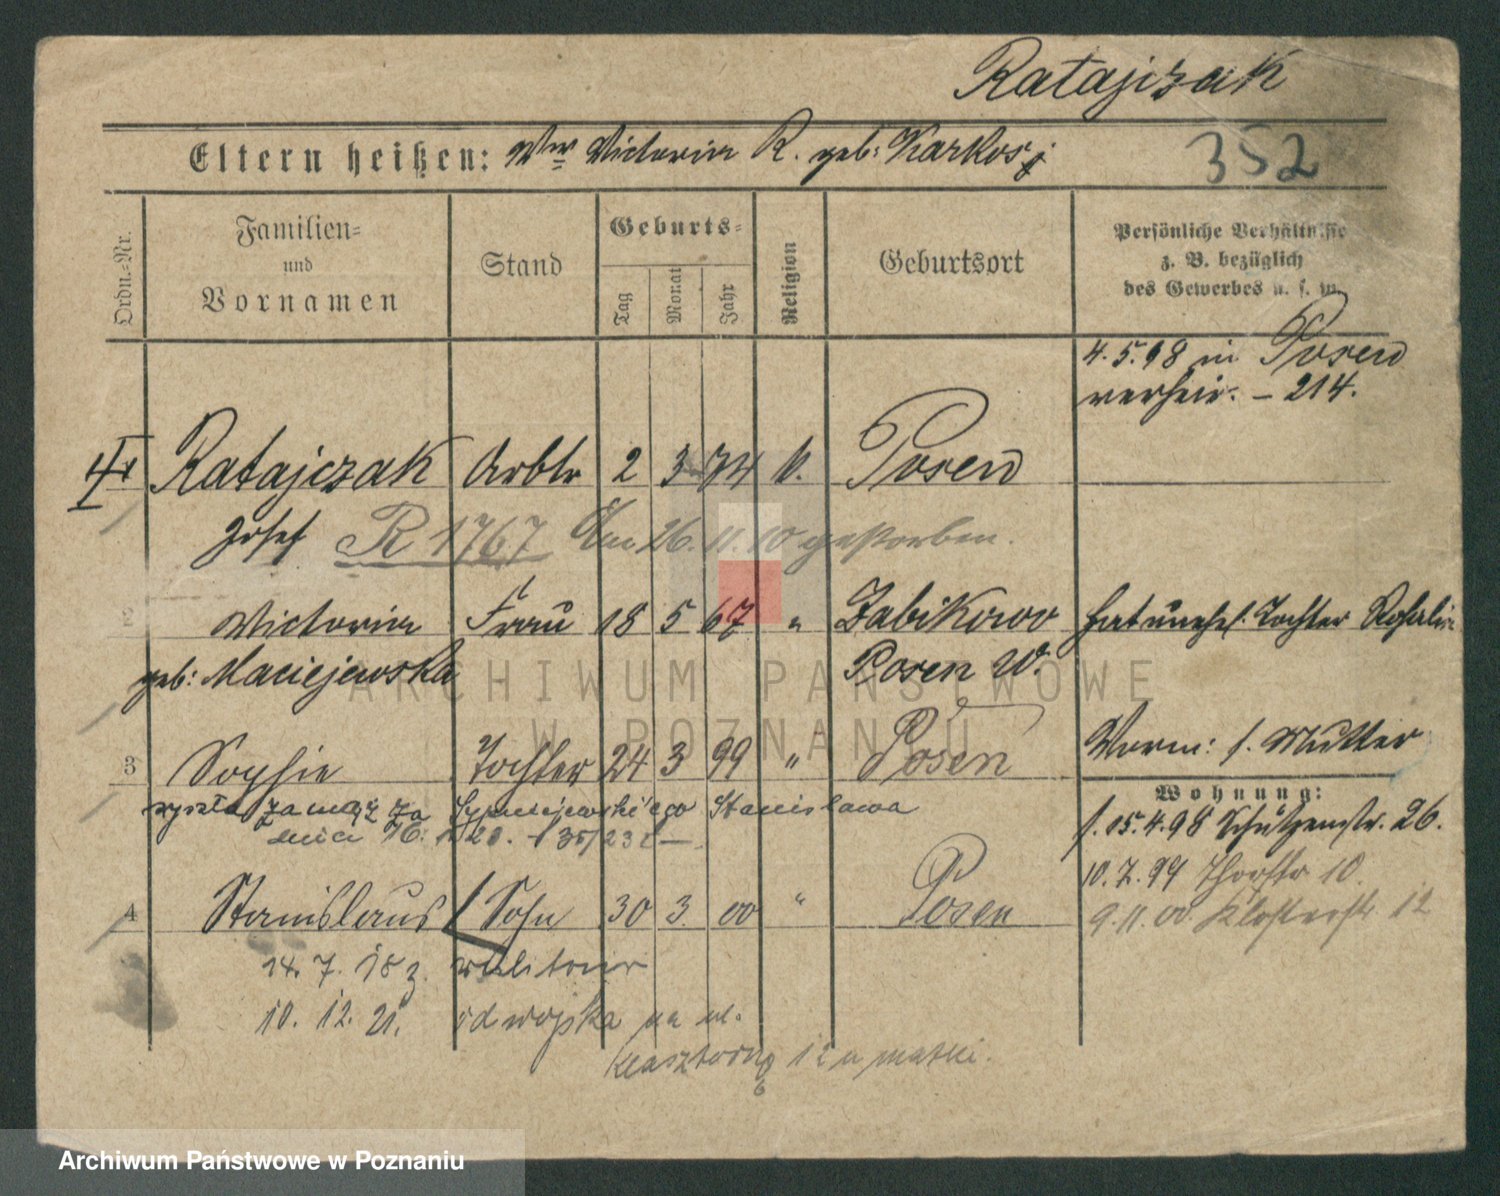 Ratajczak
Eltern heißen: Wwe Victoria R. geb: Karkosz
352
Ordn.-Nr.
Familien- und Vornamen
Stand
Geburts-
Tag
Monat
Jahr
Religion
Geburtsort
Persönliche Verhältnisse
z. B. bezüglich
des Gewerbes u. s. w.
4.5.98 in Posen
verheir. – 214.
Ratajczak Arbtr 2 3 74 k. Posen
Josef R 1767 Am 26.11.10 gestorben.
2 Victoria Frau 18 5 67 " Zabikowo hat unehel. Tochter Rosalie
geb: Maciejewska Posen W.
3 Sophie Tochter 24 3 99 " Posen
Vorm: s. Mutter
Wohnung:
wyszła zamąż za Stanisława
dnia
s. 15.4.98 Schützenstr. 26.
10.7.99 Thorstr 10.
4 Stanislaus Sohn 30 3 00 " Posen
9.11.00 Klosterstr 12
14. 7. 18 z. militair
10. 12. 21. od wojska na ul.
Klasztorną 12 u matki.
ARCHIWUM PAŃSTWOWE
W POZNANIU
Archiwum Państwowe w Poznaniu